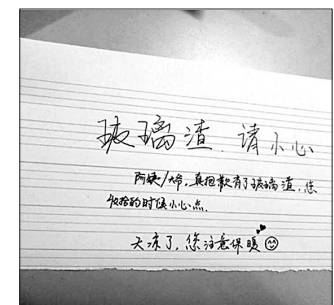 玻璃渣 请小心
阿姨/大爷,真抱歉有了玻璃渣,您
收拾的时候小心点.
天凉了,您注意保暖